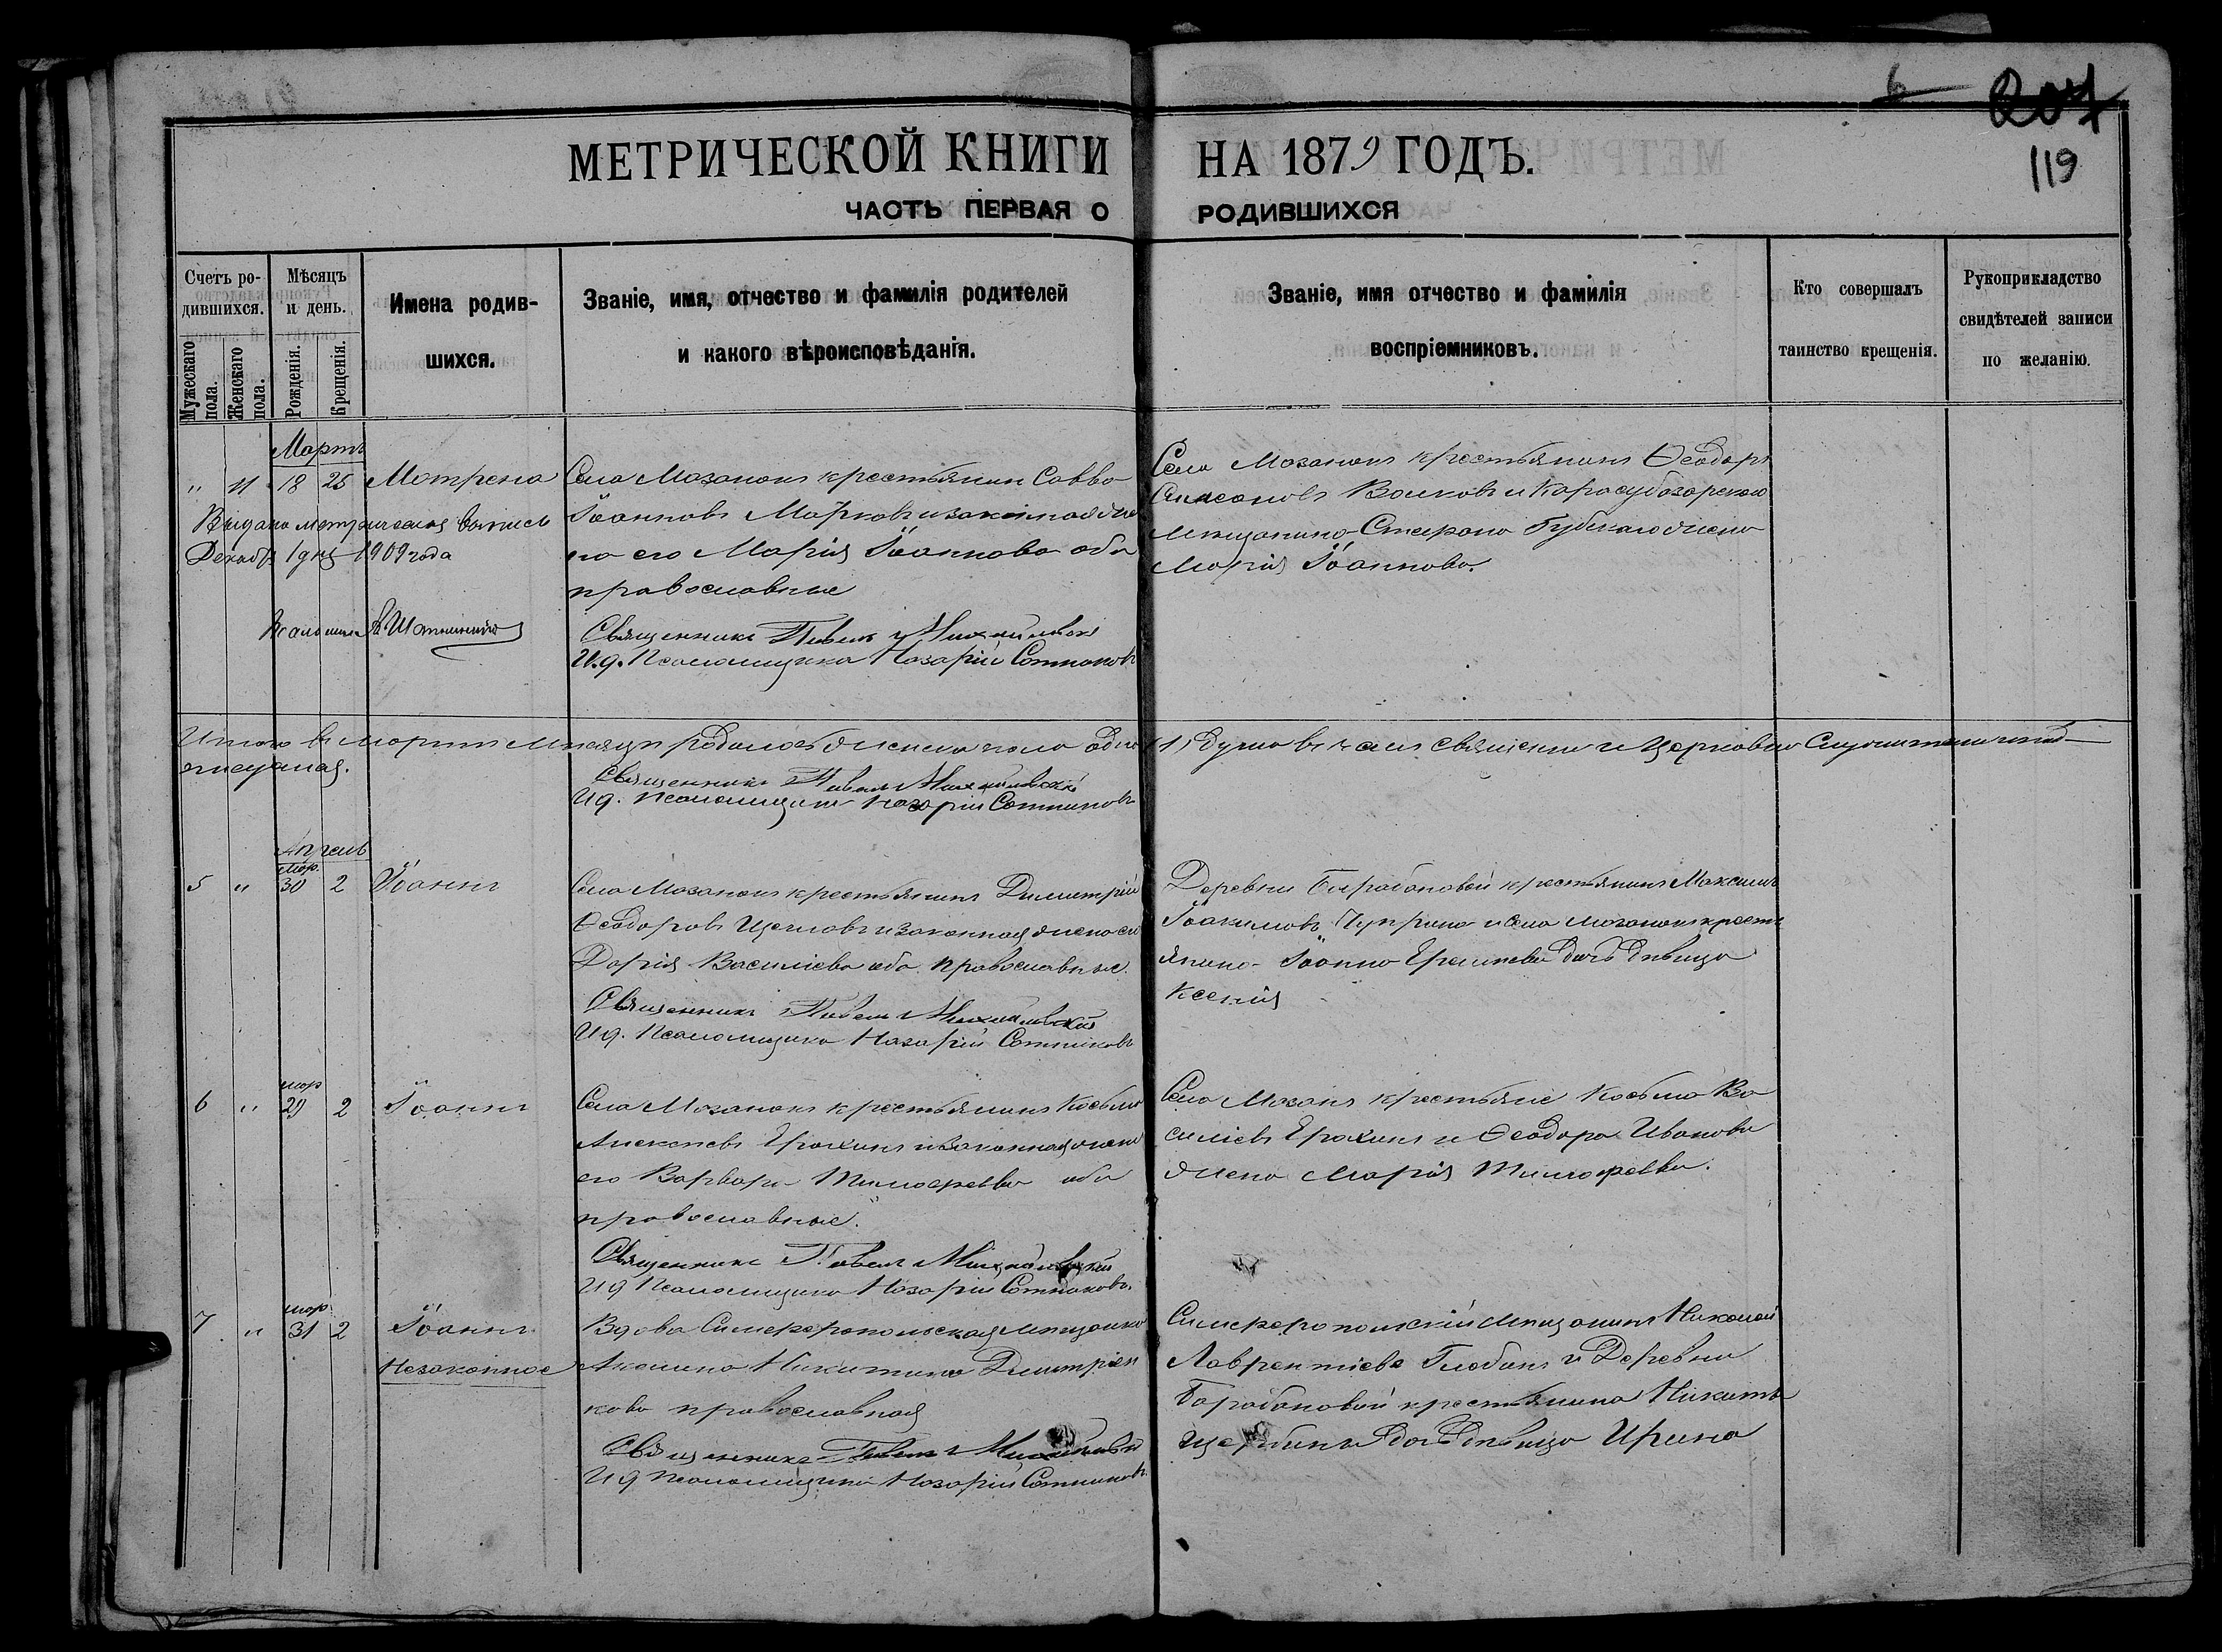 6 207
119
МЕТРИЧЕСКОЙ КНИГИ НА 1879 ГОДЪ.
ЧАСТЬ ПЕРВАЯ О РОДИВШИХСЯ
Счетъ ро-
дившихся.
Мужескаго пола.
Женскаго пола.
Мѣсяцъ
и день.
Рожденія.
Крещенія.
Имена родив-
шихся.
Званіе, имя, отчество и фамилія родителей
и какого вѣроисповѣданія.
Званіе, имя отчество и фамилія
воспріемниковъ.
Кто совершалъ
таинство крещенія.
Рукоприкладство
свидѣтелей записи
по желанію.
Мартъ
" 11 18 25 Мотрена
Выдана метрическая выпись
Декабр 1 дня 1909 года
Села Мазанокъ крестьянинъ Савва
Іоанновъ Марковъ и законная же
на его Марія Іоаннова оба
православные
Священникъ Павелъ Михайловскій
И.д. Псаломщика Назарій Сотниковъ
Села Мазанокъ крестьянинъ Ѳеодоръ
Волковъ и Карасубазарскаго
мещанина Стефана жена
Марія Іоаннова.
Итого въ мартѣ мѣсяцѣ родилось женска пола одна (1) душа въ чемъ священно и церковно служители и под-
писуемся.
Священникъ Павелъ Михайловскій
И.д. Псаломщика Назарій Сотниковъ
Апрель
5 " мар. 30 2 Іоаннъ
Села Мазанокъ крестьянинъ Димитрій
Ѳеодоровъ Щегловъ и законная жена его
Дарія Василіева оба православные.
Священникъ Павелъ Михайловскій
И.д. Псаломщика Назарій Сотниковъ
Деревни Барабановой крестьянинъ Максимъ
Іоакимовъ Чуприна и села Мазанокъ кресть
янина Іоанна дочь дѣвица
Ксенія
6 " мар 29 2 Іоаннъ
Села Мазанокъ крестьянинъ Косьма
Алексѣевъ Ерахинъ и законная жена
его Варвара Тимофеева оба
православные.
Священникъ Павелъ Михайловскій
И.д. Псаломщика Назарій Сотниковъ.
Села Мазанъ крестьяне Косьма Ва
силіевъ Ерахинъ и Ѳеодора Иванова
жена Марія Тимофеева.
7 " мар 31 2 Іоаннъ
Незаконное
Вдова Симферопольская мещанка
Акилина Никитина Димитріен
кова православная
Священникъ Павелъ Михайловскій
И.д. Псаломщика Назарій Сотниковъ
Симферопольскій мещанинъ Николай
Лаврентіевъ и Деревни
Барабановой крестьянина Никиты
Щербины дочь дѣвица Ирина